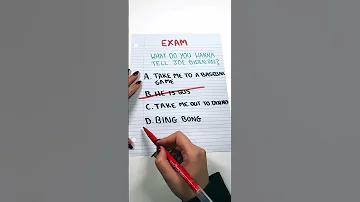 EXAM
WHAT DO YOU WANNA
TELL JOE
A. TAKE ME TO A
GAME
B. HE IS SUS
C. TAKE ME OUT TO DINNER
D. BING BONG